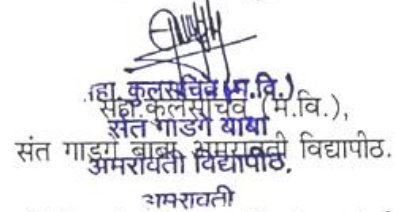 सहा. कुलसचिव (म.वि.)
सहा. कुलसचिव (म.वि.),
संत गाडगे बाबा
संत गाडगे बाबा अमरावती विद्यापीठ.
अमरावती विद्यापीठ,
अमरावती